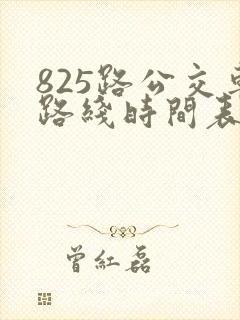 825路公交車
路綫時間表
曾紅磊